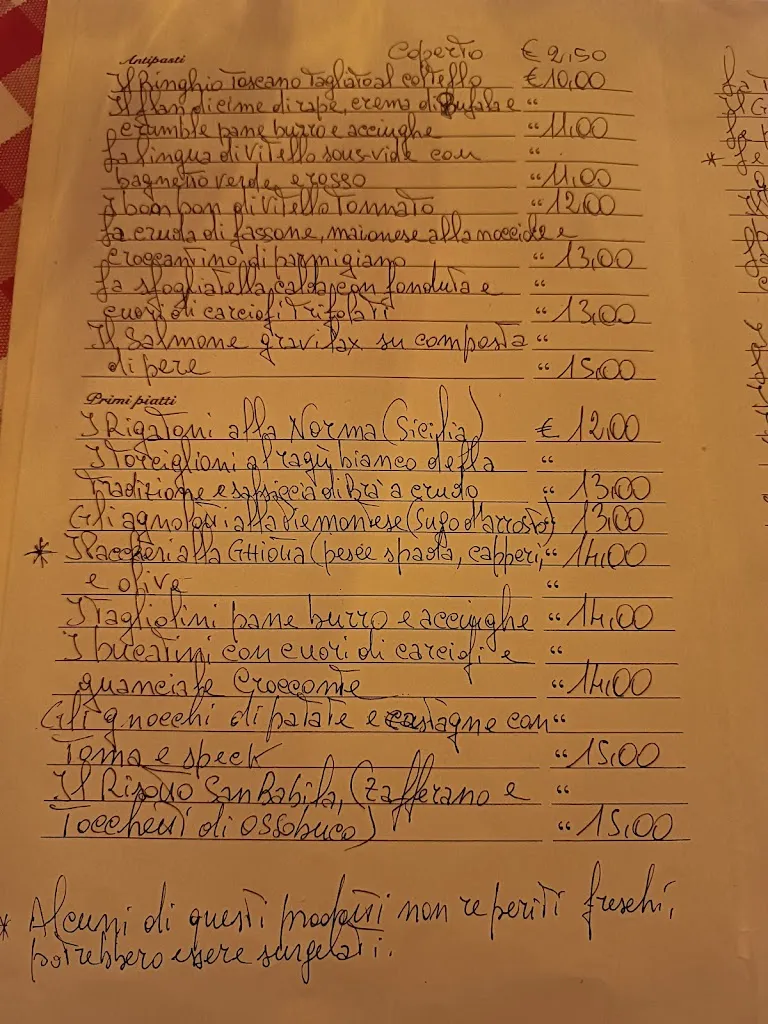 Antipasti Coperto € 2,50
Il Binghio Toscano Tagliato al coltello € 10,00
Il flan di cime di rape, crema di Bufala e “
crumble pane burro e acciughe “ 11,00
La lingua di Vitello sous-vide con “
bagnetto verde e rosso “ 11,00
I bon bon di Vitello Tonnato “ 12,00
La cruda di fassone, maionese alla nocciole e
croccantino di parmigiano “ 13,00
La sfogliatella calda con fonduta e “
cuori di carciofi trifolati “ 13,00
Il Salmone gravilax su composta “
di pere “ 15,00
Primi piatti
I Rigatoni alla Norma (Sicilia) € 12,00
I Torciglioni al ragù bianco della “
Tradizione e salsiccia di Bra a crudo “ 13,00
Gli agnolotti alla Piemontese (Sugo d'arrosto) 13,00
* I Paccheri alla Ghiotta (pesce spada, capperi, “ 14,00
e olive “
I Tagliolini pane burro e acciughe “ 14,00
I bucatini con cuori di carciofi e “
guanciale Croccante “ 14,00
Gli gnocchi di patate e castagne con “
Toma e speck “ 15,00
Il Risotto San Babila, (Zafferano e “
Tocchetti di Ossobuco) “ 15,00
* Alcuni di questi prodotti non reperiti freschi,
potrebbero essere surgelati.